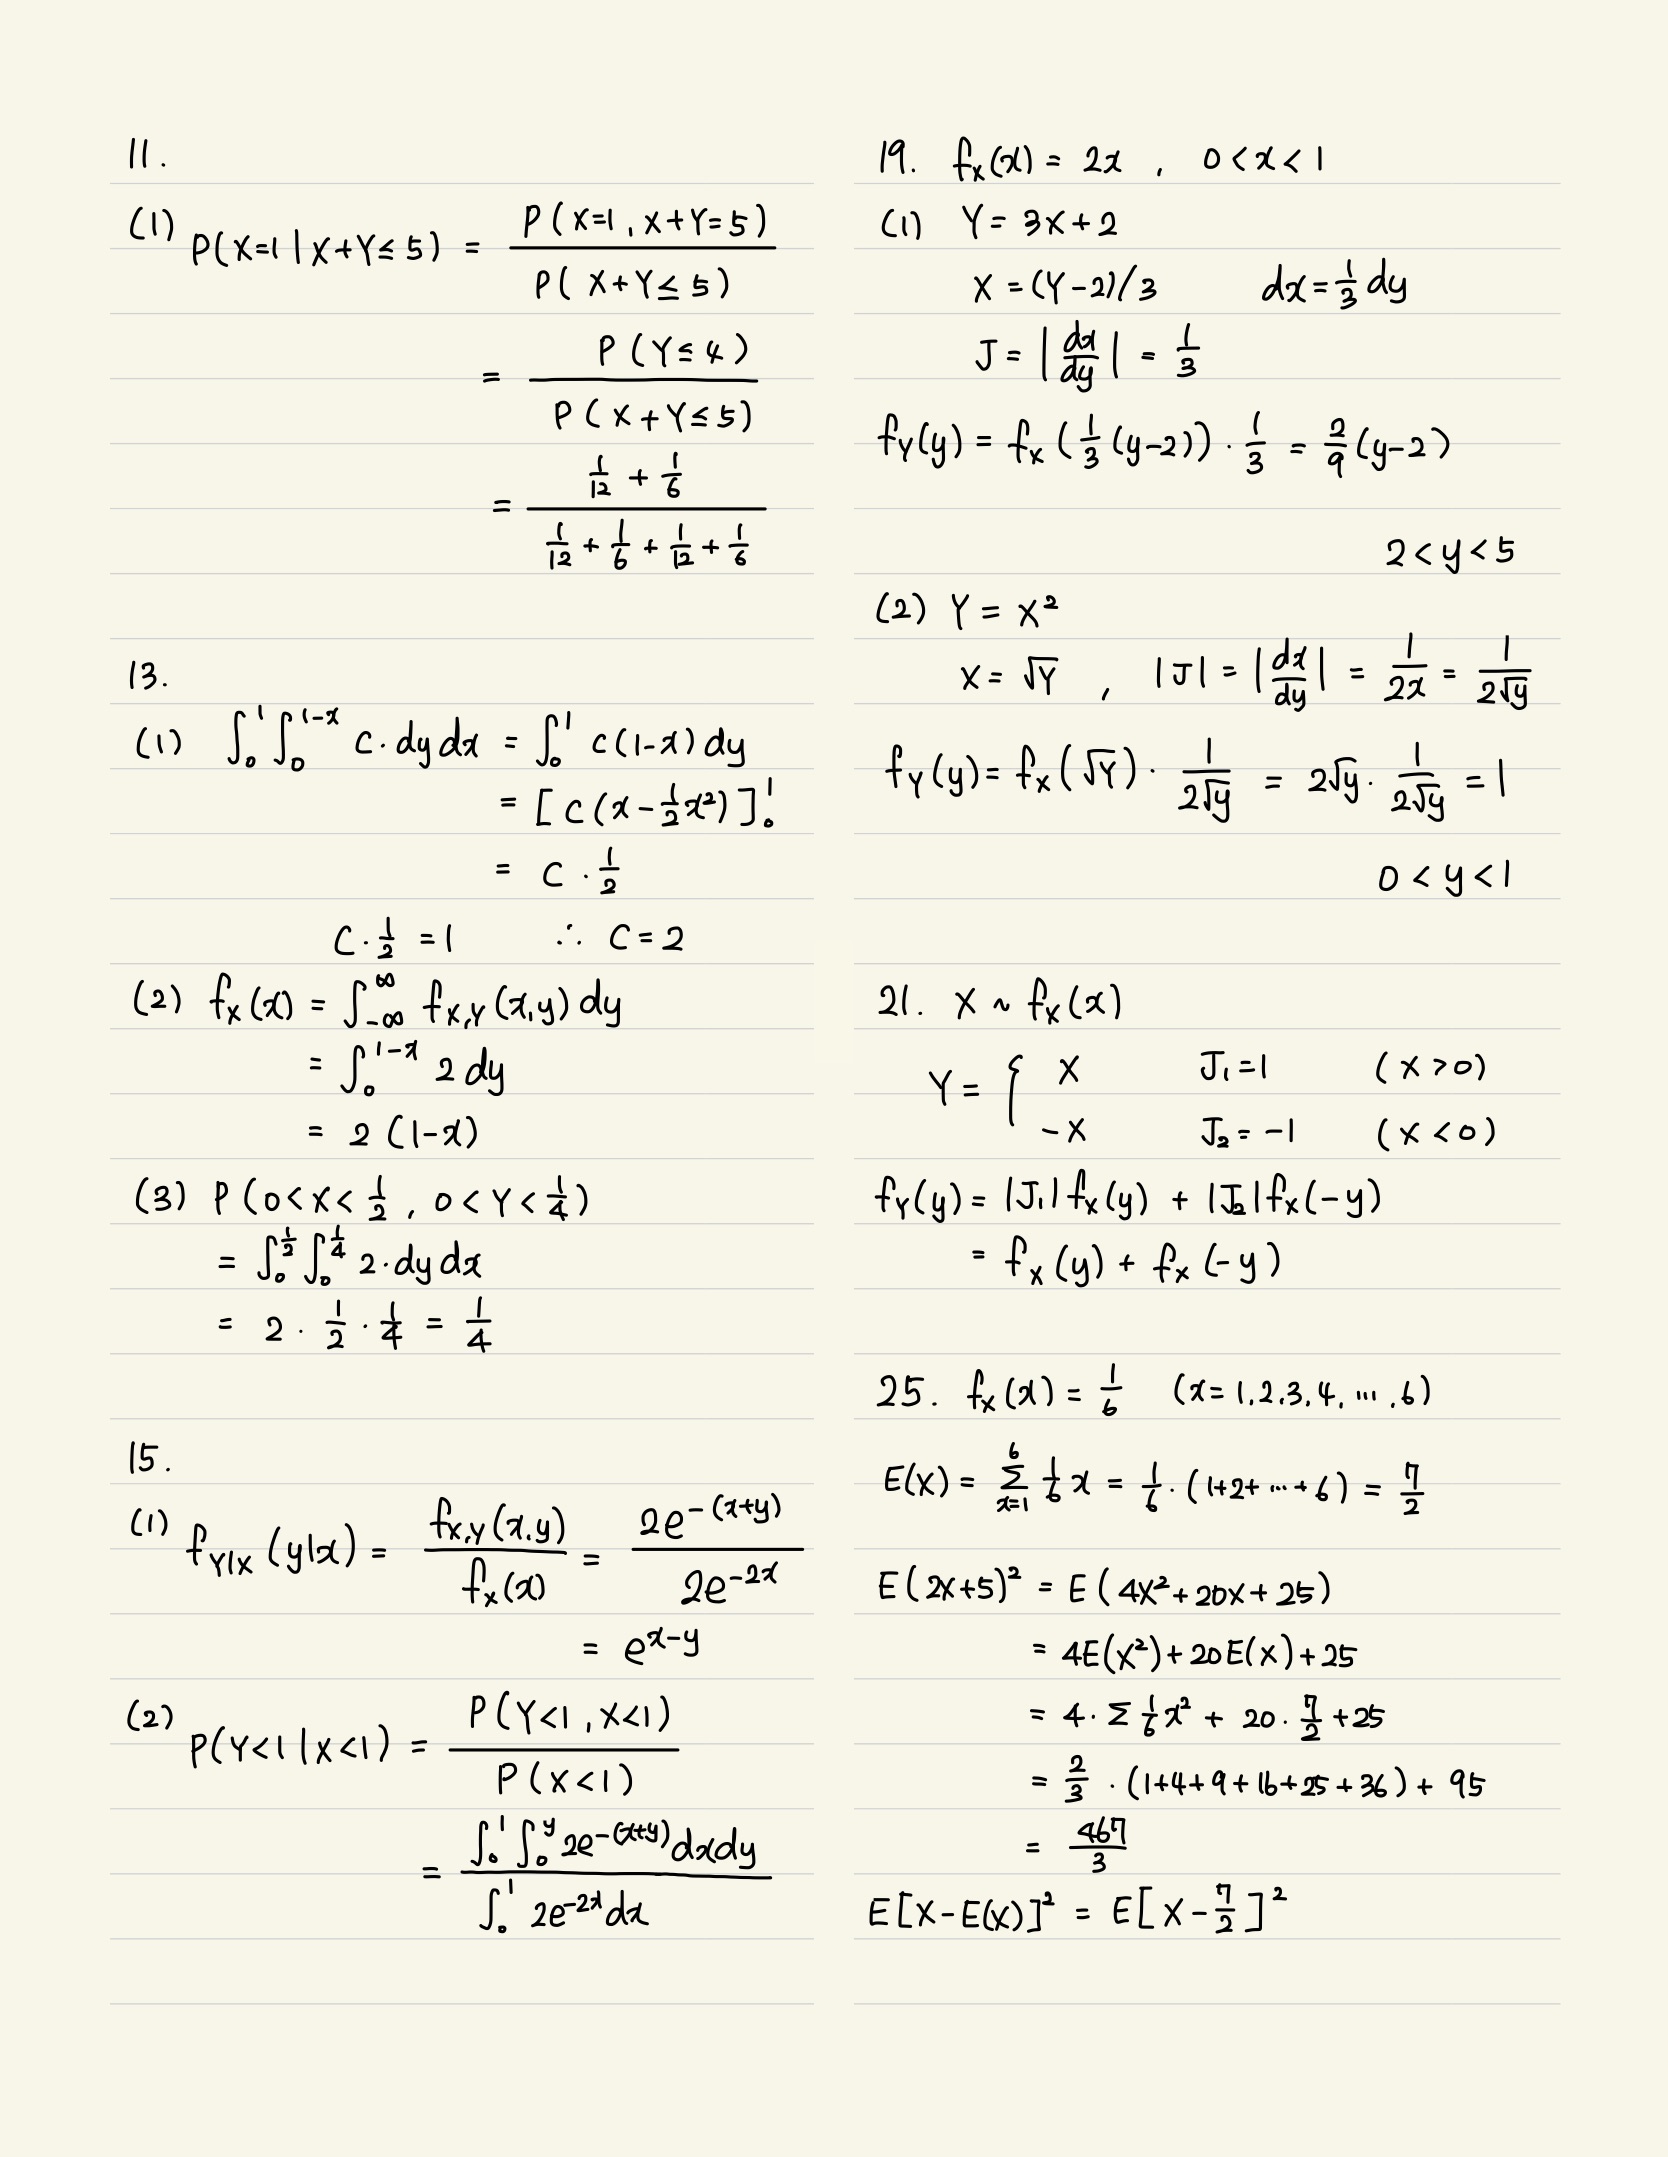 11.
(1) P(X=1 | X+Y≤5) = P(X=1, X+Y=5) / P(X+Y≤5)
= P(Y≤4) / P(X+Y≤5)
= (1/12 + 1/6) / (1/12 + 1/6 + 1/12 + 1/6)
13.
(1) ∫₀¹ ∫₀^(1-x) c·dy dx = ∫₀¹ c(1-x) dy
= [c(x - 1/2 x²)]₀¹
= c · 1/2
C · 1/2 = 1 ∴ C = 2
(2) f_X(x) = ∫_-∞^∞ f_X,Y(x,y) dy
= ∫₀^(1-x) 2 dy
= 2(1-x)
(3) P(0<X<1/2, 0<Y<1/4)
= ∫₀^(1/2) ∫₀^(1/4) 2·dy dx
= 2 · 1/2 · 1/4 = 1/4
15.
(1) f_Y|X(y|x) = f_X,Y(x,y) / f_X(x) = 2e^-(x+y) / 2e^-2x
= e^x-y
(2) P(Y<1 | X<1) = P(Y<1, X<1) / P(X<1)
= ∫₀¹ ∫₀^y 2e^-(x+y) dx dy / ∫₀¹ 2e^-2x dx
19. f_X(x) = 2x , 0<x<1
(1) Y = 3X+2
X = (Y-2)/3 dx = 1/3 dy
J = |dx/dy| = 1/3
f_Y(y) = f_X(1/3(y-2)) · 1/3 = 2/9(y-2)
2<y<5
(2) Y = X²
X = √Y , |J| = |dx/dy| = 1/2x = 1/2√y
f_Y(y) = f_X(√Y) · 1/2√y = 2√y · 1/2√y = 1
0<y<1
21. X ~ f_X(x)
Y = { X J₁=1 (X>0)
-X J₂=-1 (X<0)
f_Y(y) = |J₁|f_X(y) + |J₂|f_X(-y)
= f_X(y) + f_X(-y)
25. f_X(x) = 1/6 (x=1,2,3,4,…,6)
E(X) = Σ_x=1^6 1/6 x = 1/6 · (1+2+…+6) = 7/2
E(2X+5)² = E(4X²+20X+25)
= 4E(X²)+20E(X)+25
= 4·Σ 1/6 x² + 20 · 7/2 +25
= 2/3 · (1+4+9+16+25+36) + 95
= 467/3
E[X-E(X)]² = E[X-7/2]²